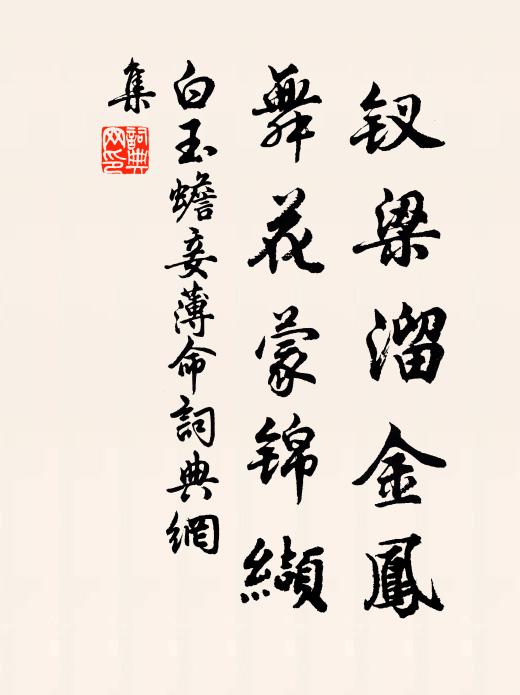 钗梁溜金鳳
舞花蒙锦纈
白玉蟾妾薄命詞典網
集
詞典網印